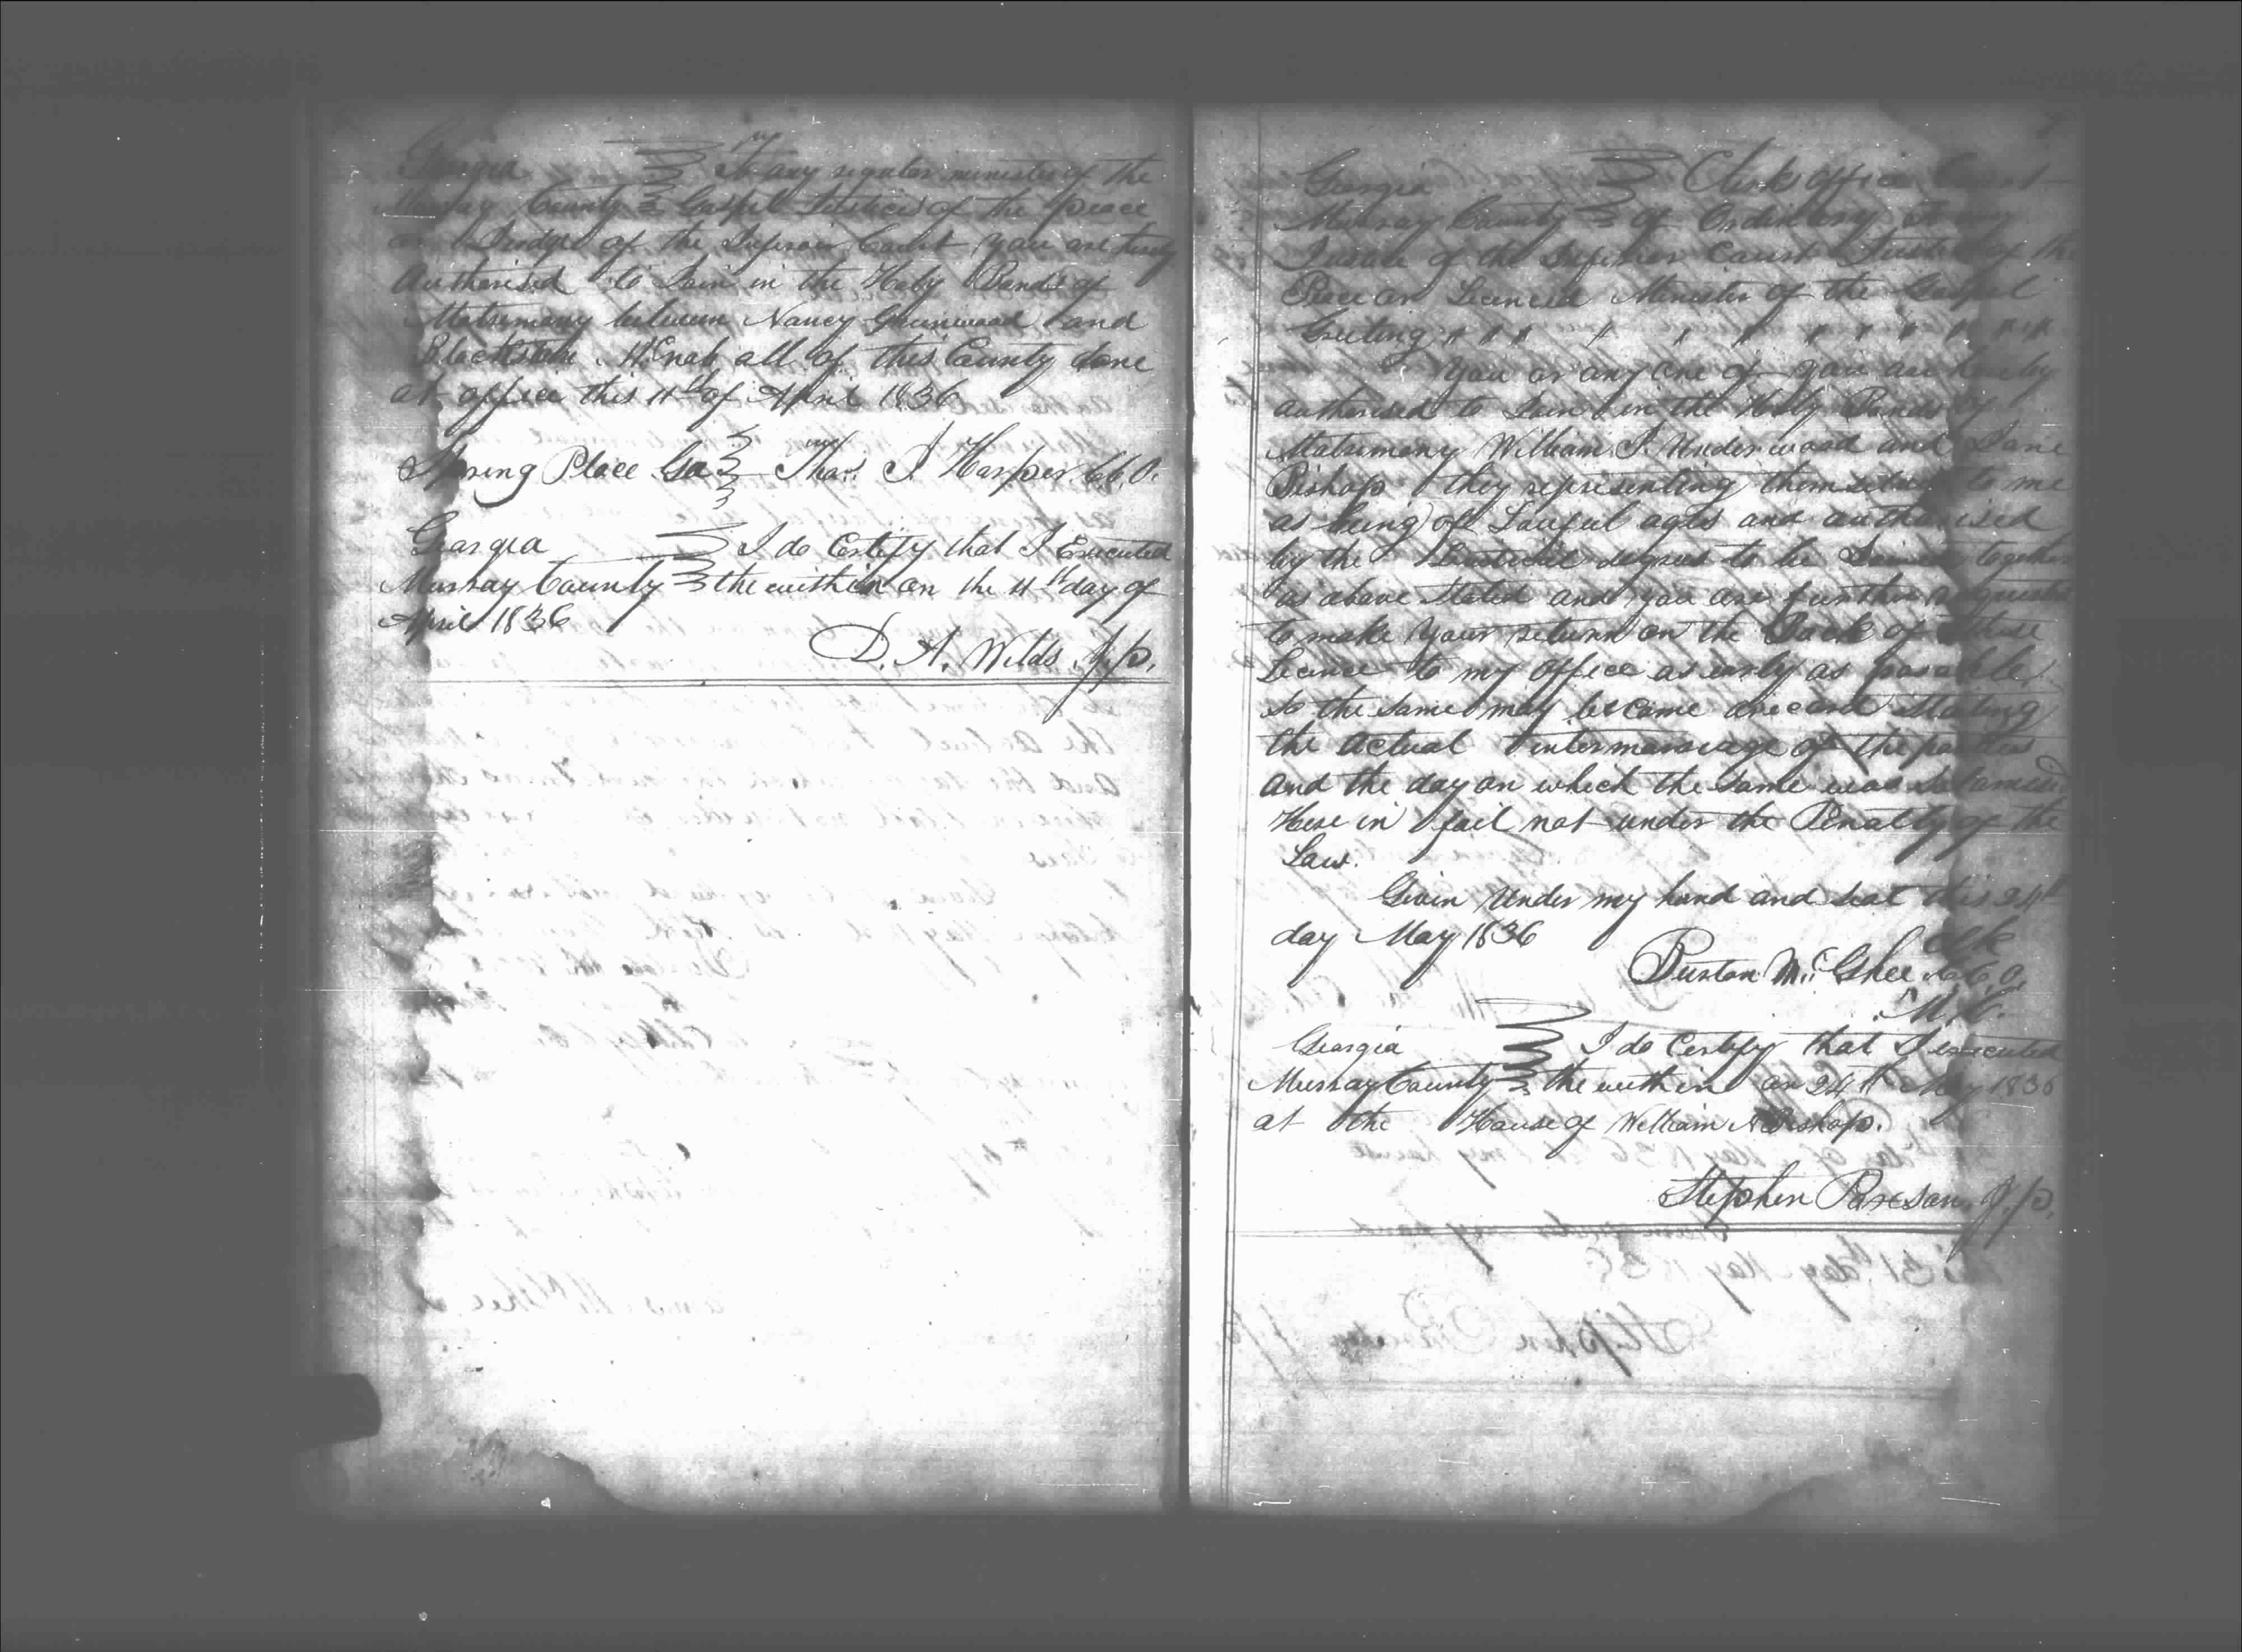 Georgia To any regular minister of the
Murray County Gospel Justice of the peace
or Judge of the Superior Court you are hereby
Authorised to Join in the Holy Bands of
Matrimony between Nancy Greenwood and
Blackstone McNab all of this County done
at office this 11th of April 1836
Spring Place Ga Thos. J. Harper C.C.O.
Georgia I do Certify that I Executed
Murray County the within on the 11th day of
April 1836
D. A. Wilds J.p.
Georgia Clerks office Court
Murray County of Ordinary To any
of the Superior Court Justice of the
Peace or Licenced Minister of the Gospel
Greeting
You or any one of you are hereby
authorised to Join in the Holy Bands of
Matrimony William J. Underwood and Jane
Bishop they representing themselves to me
as being of Lawful ages and authorised
by the degrees to be Joined together
as above Stated and you are further requested
to make your return on the Back of these
Licence to my office as early as posable
So the Same may become arecord Stating
the actual intermarriage of the parties
and the day on which the Same was Solemnised
Here in fail not under the Penalty of the
Law.
Given under my hand and Seal this 24th
day May 1836
Clk
Burton McGhee C.O.
M.C.
Georgia I do Certify that I executed
Murray County the within on 24th May 1836
at the House of William N Bishop.
Stephen J.p.